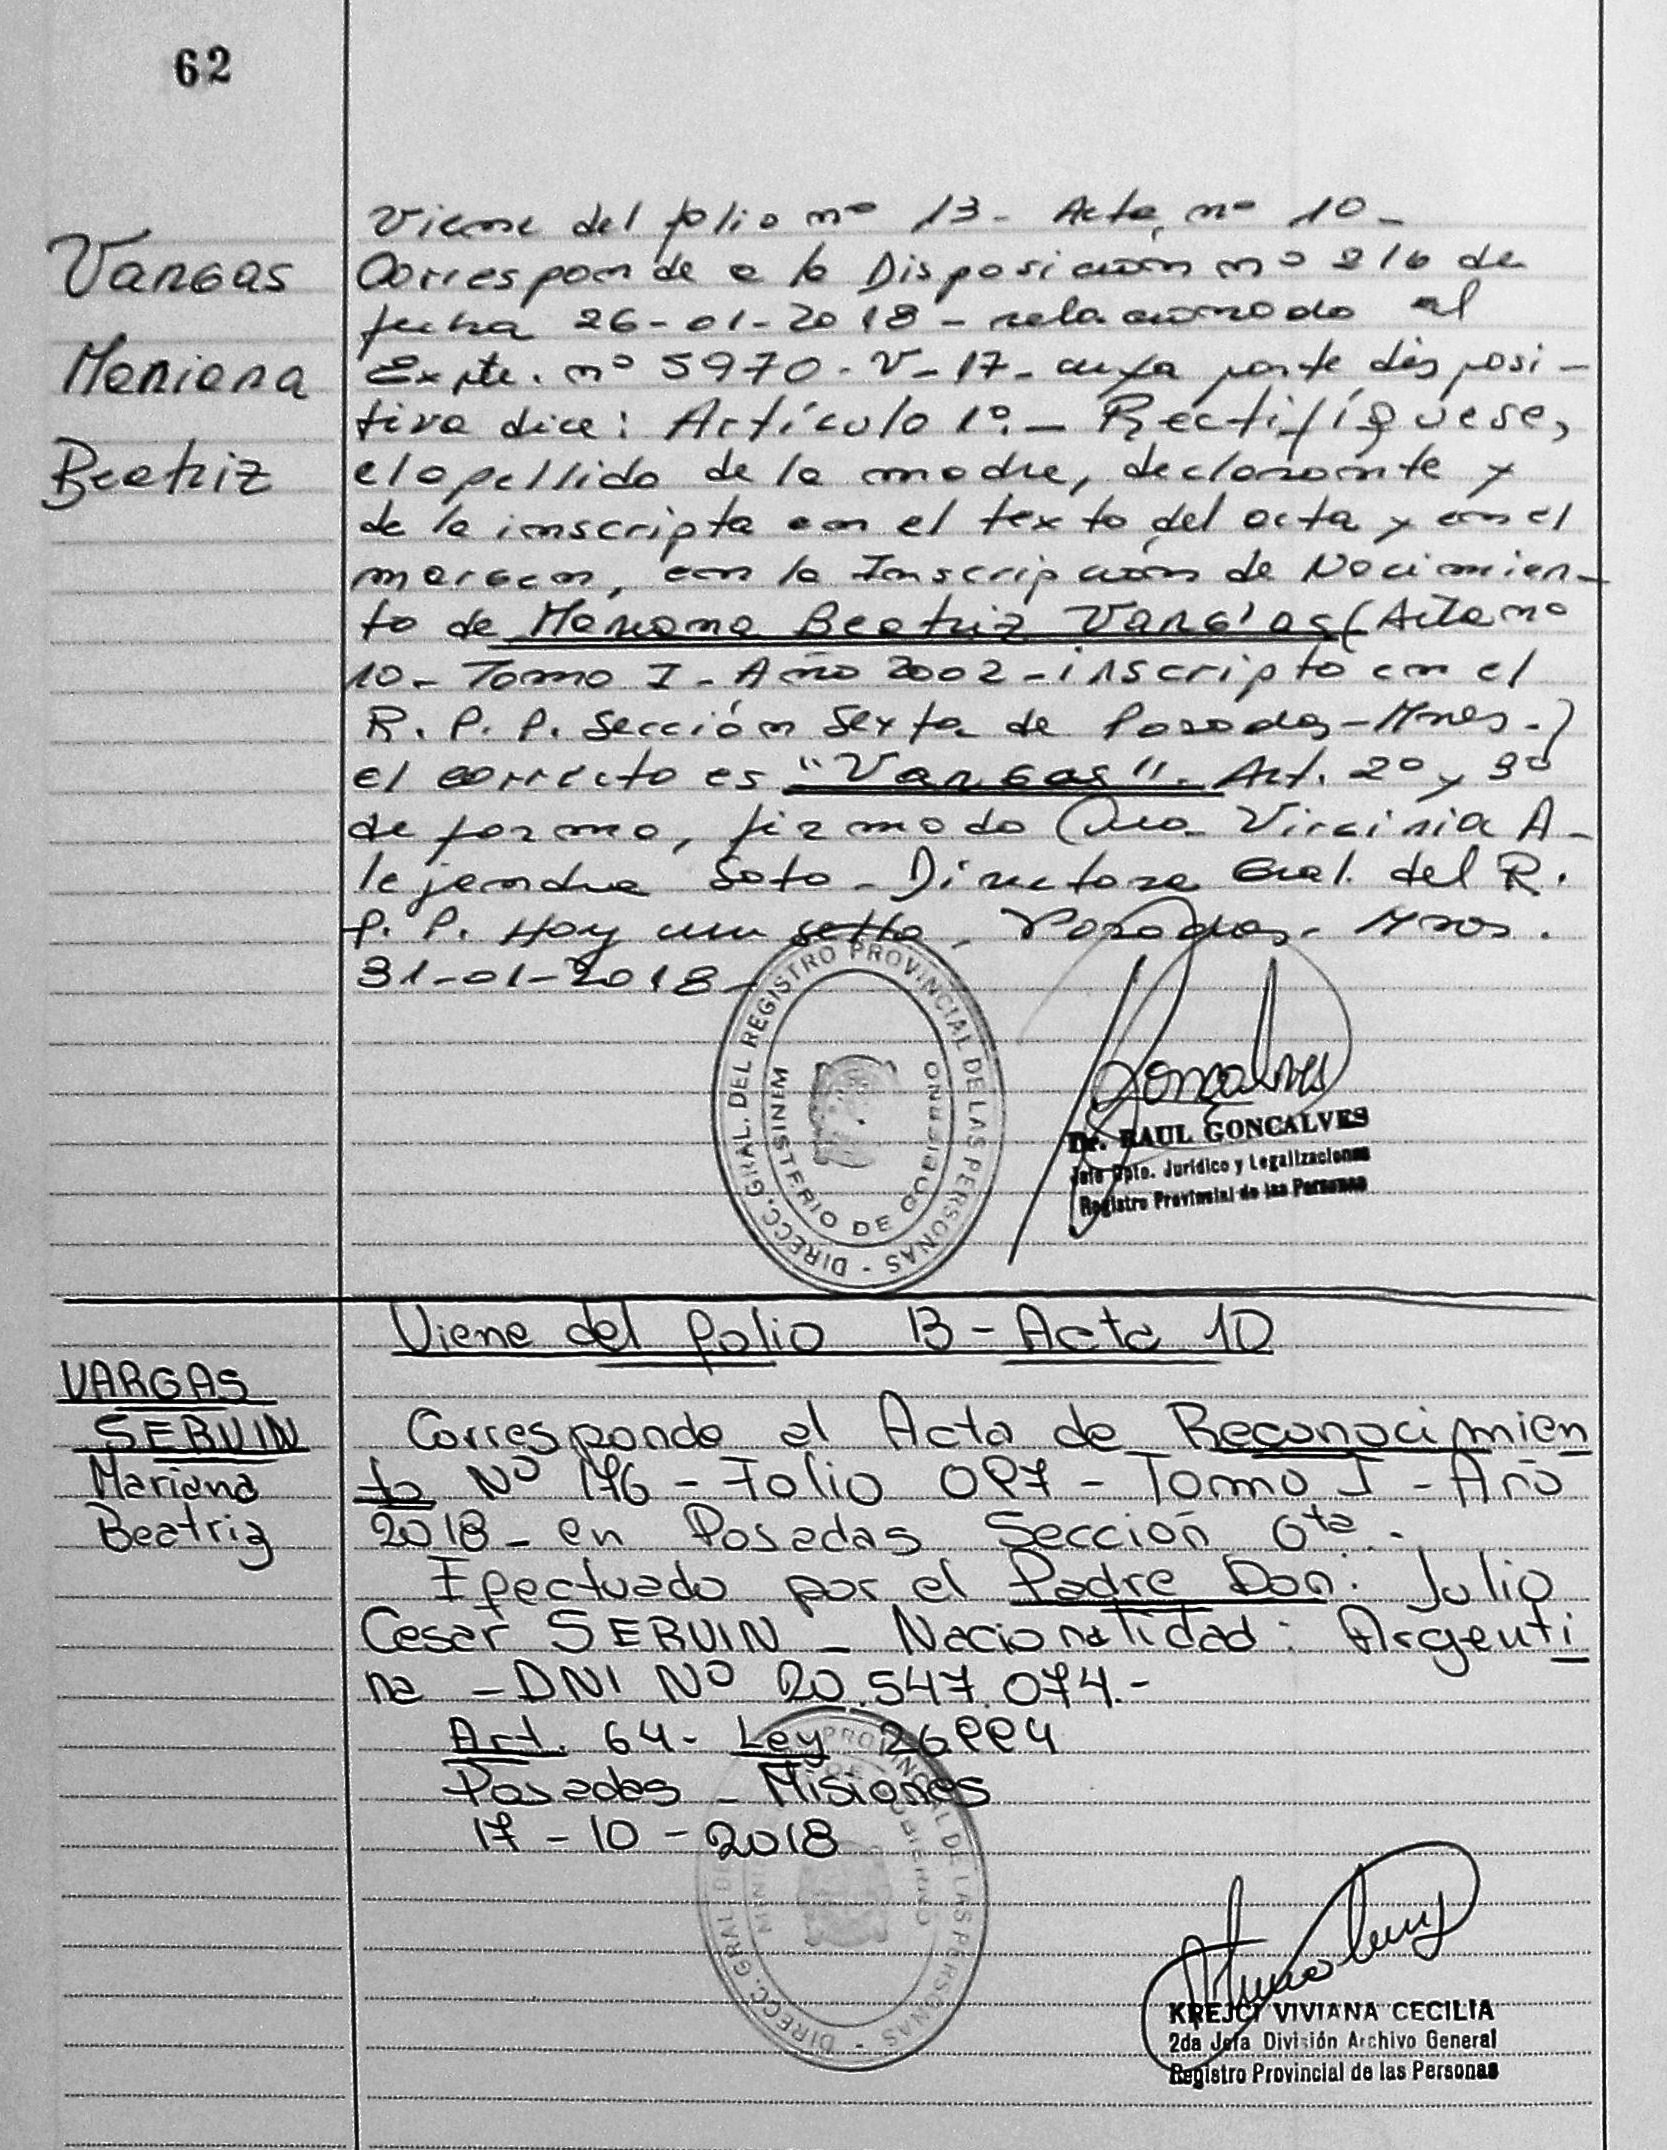 62
Vargas
Mariana
Beatriz
Viene del folio nº 13 - Acta nº 10 -
Corresponde a la Disposición nº 216 de
fecha 26-01-2018 - relacionado al
Expte. nº 5970-V-17- cuya parte disposi-
tiva dice: Artículo 1º.- Rectifíquese,
el apellido de la madre, declarante y
de la inscripta en el texto del acta y en el
margen, en la Inscripción de Nacimien-
to de Mariana Beatriz Vargas (Acta nº
10 - Tomo I - Año 2002 - inscripto en el
R. P. P. Sección Sexta de Posadas - Mnes.)
el correcto es "Vargas". Art. 2º y 3º
de forma, firmado Dra. Virginia A-
lejandra Soto - Directora Gral. del R.
P. P. Hay un sello. Posadas. Mnes.
31-01-2018-
DIRECC. GRAL. DEL REGISTRO PROVINCIAL DE LAS PERSONAS -
MINISTERIO DE GOBIERNO
Goncalves
Dr. RAUL GONCALVES
Jefe Dpto. Jurídico y Legalizaciones
Registro Provincial de las Personas
Viene del folio 13 - Acta 10
VARGAS
SERVIN
Mariana
Beatriz
Corresponde al Acta de Reconocimien
to Nº 176 - Folio 097 - Tomo I - Año
2018 - en Posadas Sección 6ta.-
Efectuado por el Padre Don: Julio
Cesar SERVIN - Nacionalidad: Argenti
na - DNI Nº 20.547.074.-
Art. 64 - Ley 26994
Posadas - Misiones
17-10-2018
DIRECC. GRAL. D PROVINCIAL DE LAS PERSONAS -
MINI DE GOBIERNO
KREJCI VIVIANA CECILIA
2da Jefa División Archivo General
Registro Provincial de las Personas